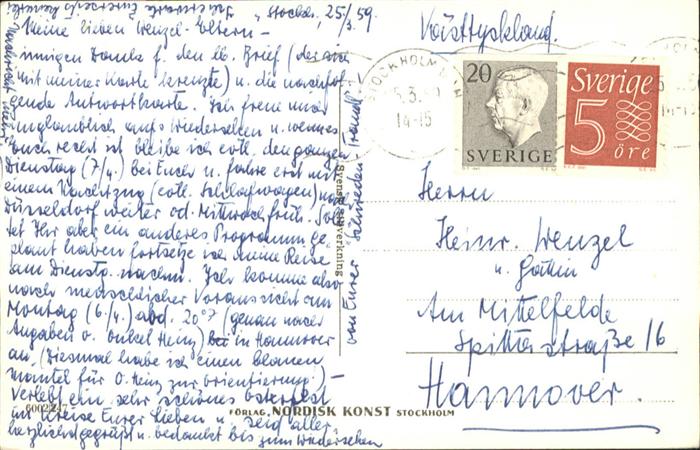 Stockh., 25/3. 59.
Meine lieben Wenzel-Eltern –
innigen Dank f. den lb. Brief (der sich
mit meiner Karte kreuzte) u. die nachfol-
gende Antwortkarte. Ich freue mich
unglaublich aufs Wiedersehen u. wenn es
Euch recht ist bleibe ich evtl. den ganzen
Dienstag (7/4.) bei Euch u. fahre erst mit
einem Nachtzug (evtl. Schlafwagen) nach
Düsseldorf weiter od. Mittwoch früh. Soll-
tet Ihr aber ein anderes Programm ge-
plant haben fortsetze ich meine Reise
am Dienstg. nachm. Ich komme also
nach menschlicher Voraussicht am
Montag (6/4.) abd. 20°7 (genau nach
Angaben v. Onkel Heinz) bei in Hannover
an. (Diesmal habe ich einen blauen
Mantel für O. Heinz zur Orientierung!) –
Verlebt ein sehr schönes Osterfest
im Kreise Eurer Lieben u. seid aller-
herzlichst gegrüßt u. bedankt bis zum Wiedersehen
von Eurer Schweden-
Svensk tillverkning
6002247
FÖRLAG, NORDISK KONST STOCKHOLM
Västtyskland.
STOCKHOLM
5.3.59
14-15
20
SVERIGE
Sverige
5
öre
Herrn
Heinr. Wenzel
u. Gattin
Am Mittelfelde
Spittastraße 16
Hannover.